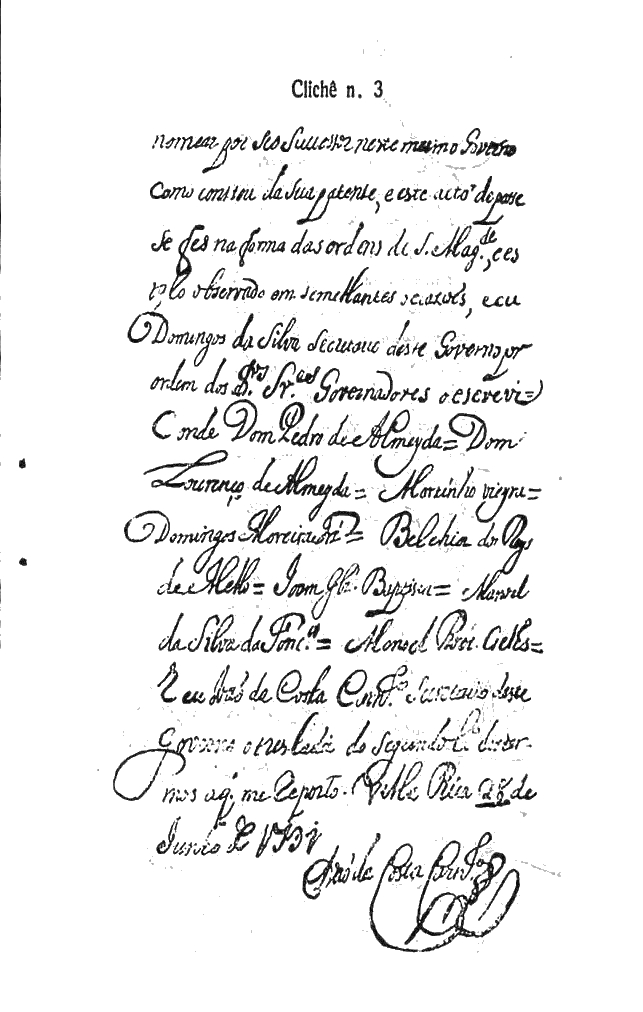 Clichê n. 3
nomear por seo Sucessor neste mesmo Governo
Como constou da Sua patente, e este acto de posse
se fes na forma das ordens de S. Mag.de, e es
tylo observado em semelhantes
Domingos da Silva Secretario deste Governo por
ordem dos d.os Sr.es Governadores o escrevi=
Conde Dom Pedro de Almeyda= Dom
Lourenço de Almeyda= Martinho vieyra=
Domingos Moreira = Belchior dos Reys
de Mello= Joam Baptista= Manoel
da Silva da = Manoel
E eu Brás da Costa Secretario deste
Governo o do segundo L.o deter
mos aq. me Reporto. Villa Rica 28 de
Junho de
Brás da Costa